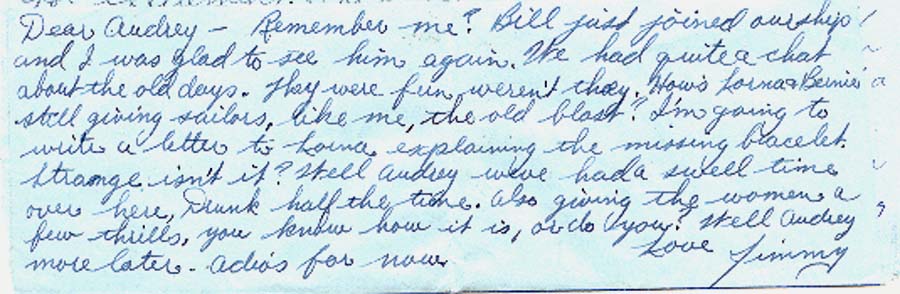 Dear Audrey - Remember me? Bill just joined our ship
and I was glad to see him again. We had quite a chat
about the old days. They were fun, weren't they. How's Lorna & Bernie
still giving sailors, like me, the old blast? I'm going to
write a letter to Lorna explaining the missing bracelet.
Strange isn't it? Well Audrey we've had a swell time
over here, Drunk half the time. Also giving the women a
few thrills, you know how it is, or do you? Well Audrey
more later - adios for now.
Love Jimmy